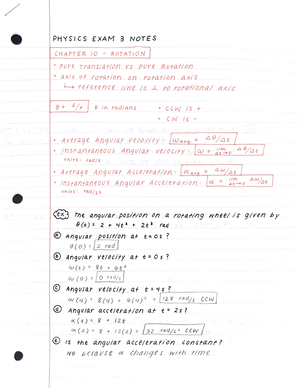 PHYSICS EXAM 3 NOTES
CHAPTER 10 - ROTATION
• Pure Translation vs Pure Rotation
• axis of rotation or rotation axis
↳ reference line is ⊥ to rotational axis
θ = s/r θ in radians • CCW is +
• CW is -
• Average Angular Velocity: ω avg = Δθ/Δt
• Instantaneous Angular Velocity: ω = lim Δt→0 Δθ/Δt
units: rad/s
• Average Angular Acceleration: α avg = Δω/Δt
• Instantaneous Angular Acceleration: α = lim Δt→0 Δω/Δt
units: rad/s²
EX. The angular position on a rotating wheel is given by
θ(t) = 2 + 4t² + 2t³ rad
a Angular position at t=0s?
θ(0) = 2 rad
b Angular velocity at t=0s?
ω(t) = 8t + 6t²
ω(0) = 0 rad/s
c Angular velocity at t=4s?
ω(4) = 8(4) + 6(4)² = 128 rad/s CCW
d Angular acceleration at t=2s?
α(t) = 8 + 12t
α(2) = 8 + 12(2) = 32 rad/s² CCW
e Is the angular acceleration constant?
NO because α changes with time